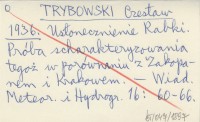 TRYBOWSKI Czesław
1936. Usłonecznienie Rabki.
Próba scharakteryzowania
tegoż w porównaniu z Zakopa-
nem i Krakowem. — Wiad.
Meteor. i Hydrogr. 16: 60-66.